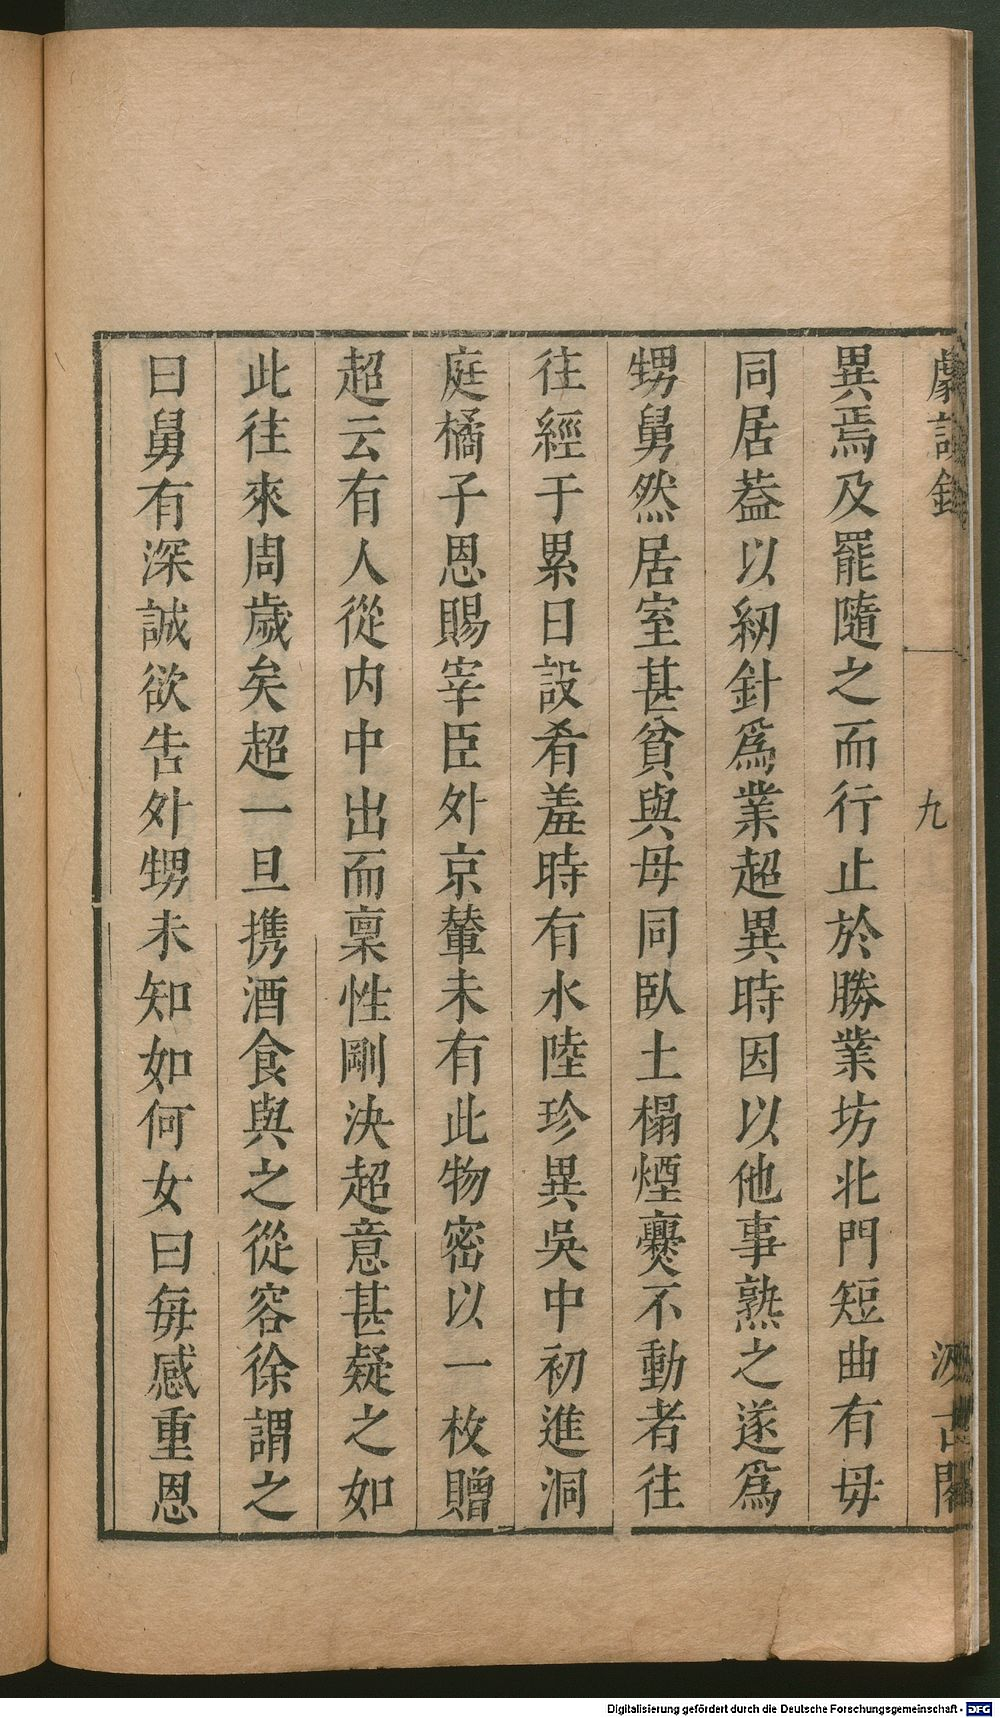 劇談錄
九
汲古閣
異焉及罷隨之而行止於勝業坊北門短曲有毋
同居葢以紉針爲業超異時因以他事熟之遂爲
甥舅然居室甚貧與母同臥土榻煙爨不動者往
往經于累日設肴羞時有水陸珍異吳中初進洞
庭橘子恩賜宰臣外京輦未有此物密以一枚贈
超云有人從內中出而稟性剛決超意甚疑之如
此往來周歲矣超一旦携酒食與之從容徐謂之
曰舅有深誠欲告外甥未知如何女曰每感重恩
Digitalisierung gefördert durch die Deutsche Forschungsgemeinschaft - DFG